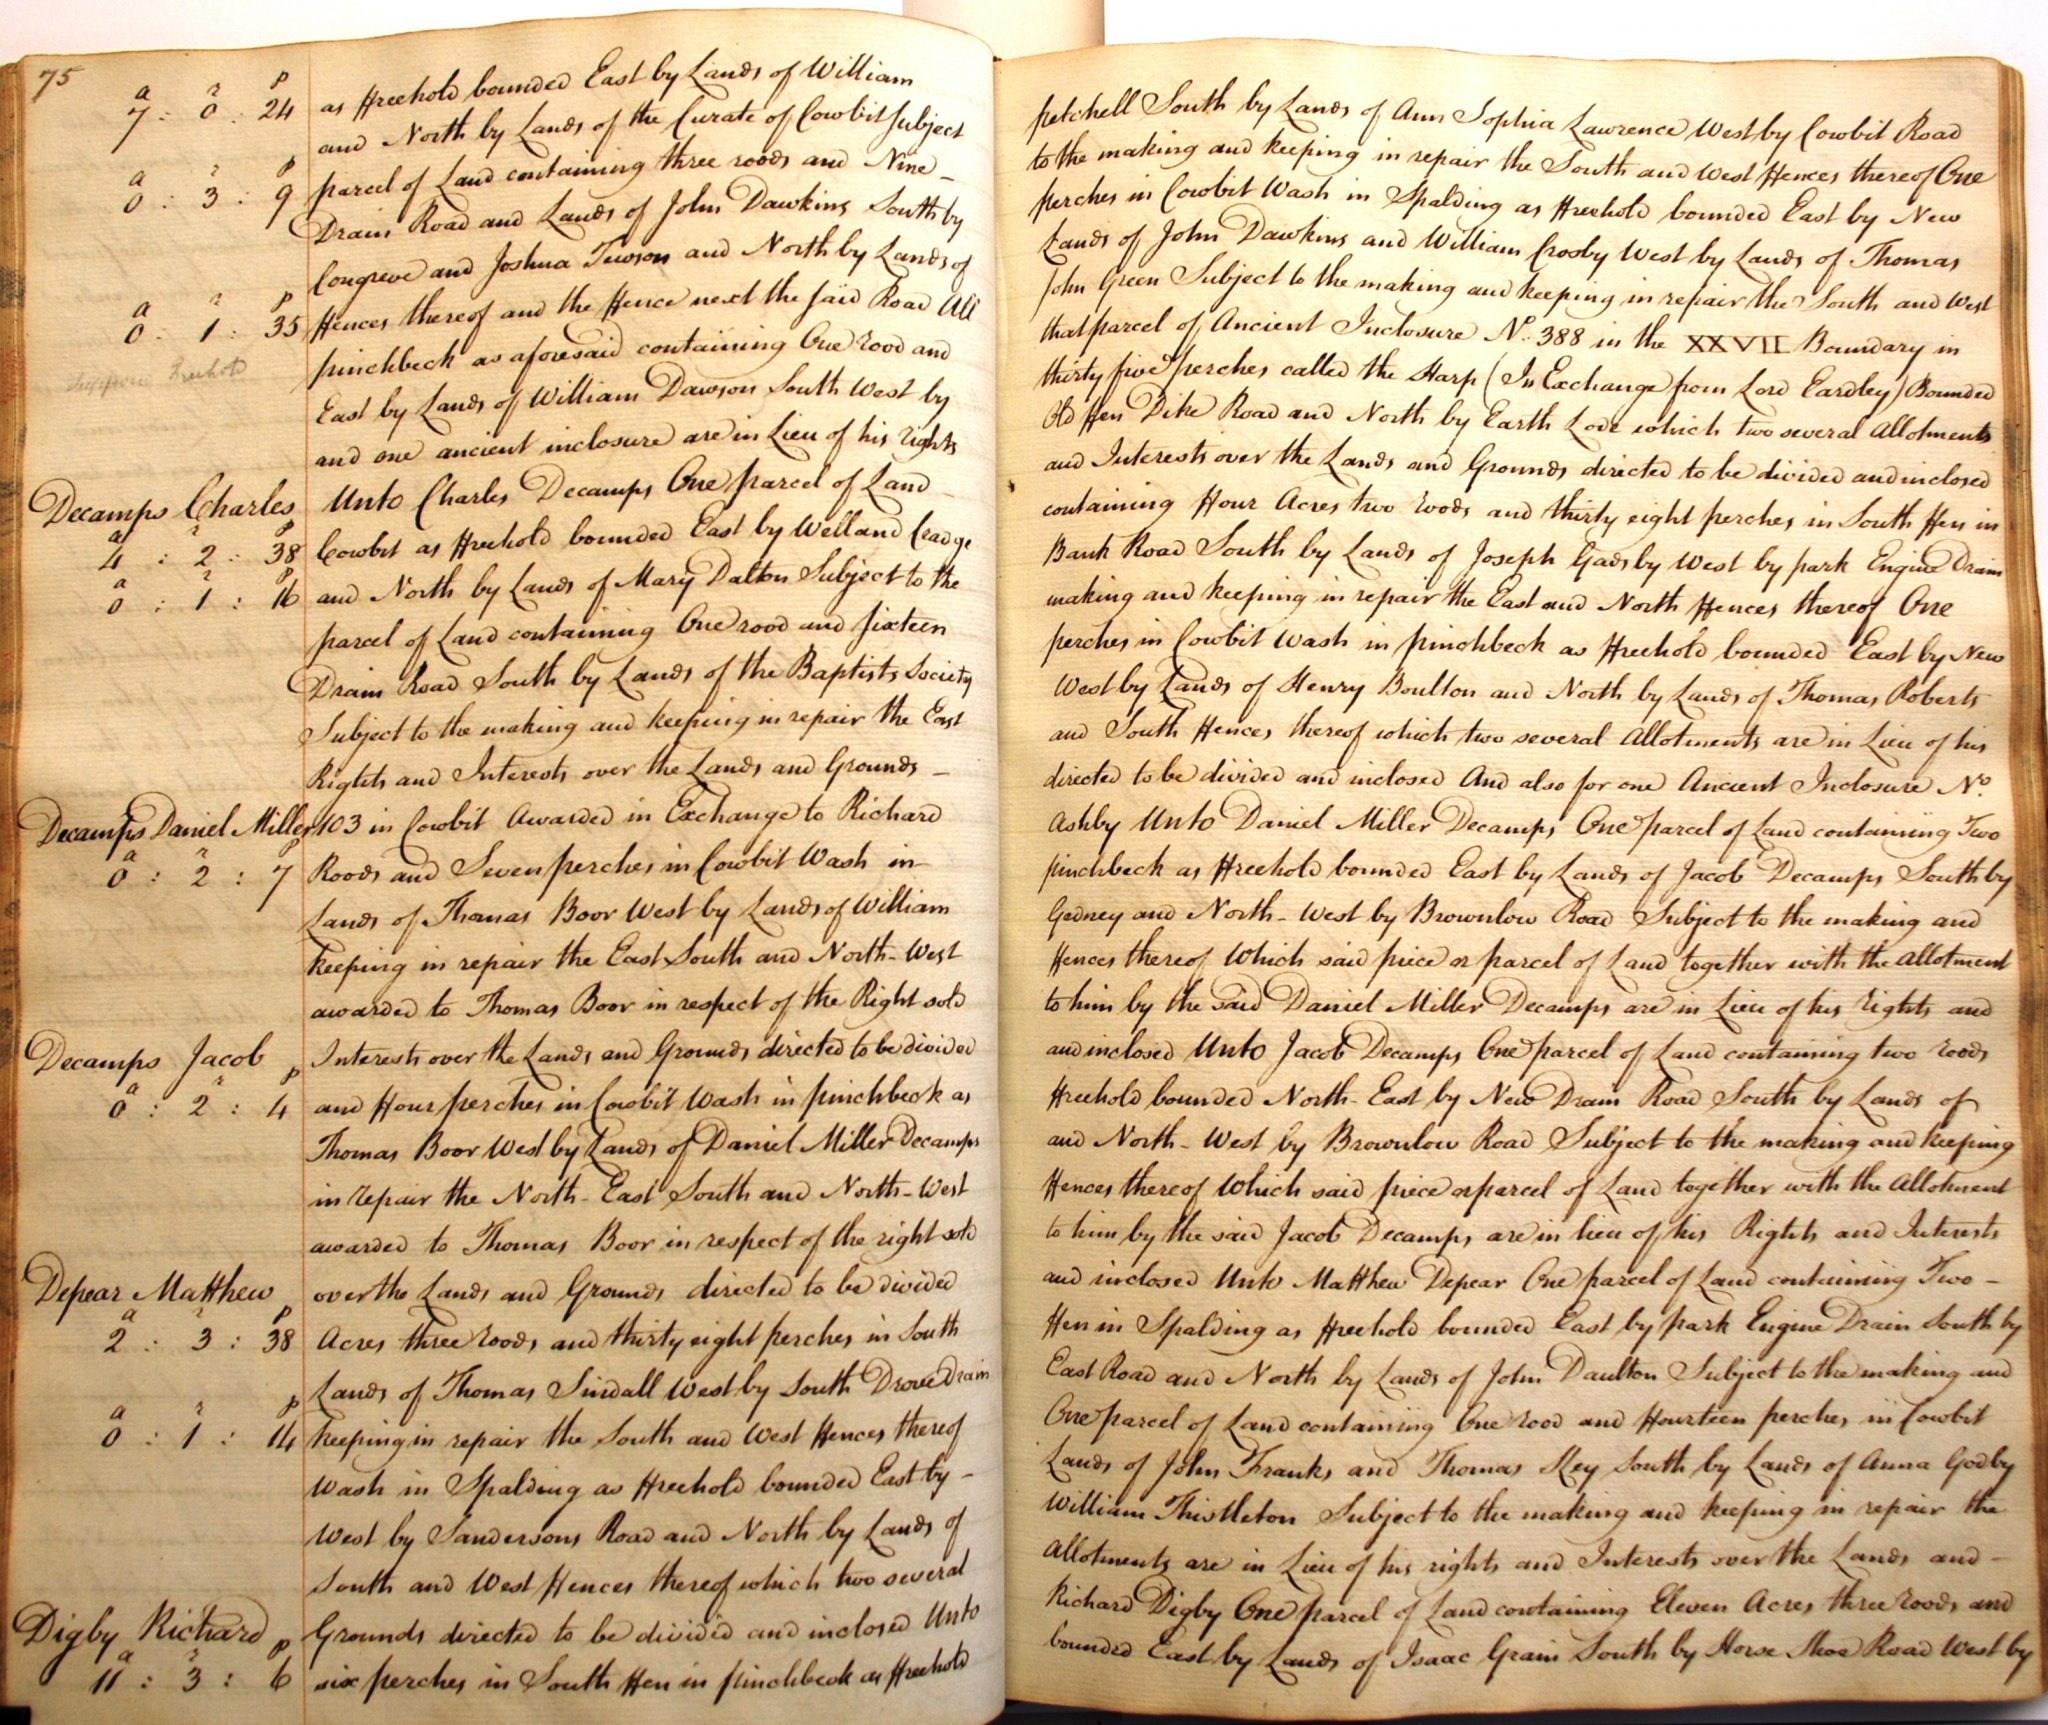 75
a r p
7 : 0 : 24
as Freehold bounded East by Lands of William petchell South by Lands of Ann Sophia Lawrence West by Cowbit Road
and North by Lands of the Curate of Cowbit Subject to the making and keeping in repair the South and West Fences thereof One
a r p
0 : 3 : 9
parcel of Land containing three roods and Nine perches in Cowbit Wash in Spalding as Freehold bounded East by New
Drain Road and Lands of John Dawkins South by Lands of John Dawkins and William Crosby West by Lands of Thomas
Congreve and Joshua Tewson and North by Lands of John Green Subject to the making and keeping in repair the South and West
a r p
0 : 1 : 35
Fences thereof and the Fence next the said Road All that parcel of Ancient Inclosure No. 388 in the XXVII Boundary in
pinchbeck as aforesaid containing One rood and thirty five perches called the Harp (In Exchange from Lord Eardley) Bounded
Freehold
East by Lands of William Dawson South West by Old Fen Dike Road and North by Earth Lode which two several Allotments
and one ancient inclosure are in Lieu of his rights and Interests over the Lands and Grounds directed to be divided and inclosed
Decamps Charles
Unto Charles Decamps One parcel of Land containing Four Acres two roods and thirty eight perches in South Fen in
a r p
4 : 2 : 38
Cowbit as Freehold bounded East by Welland Cradge Bank Road South by Lands of Joseph Gadsby West by park Engine Drain
a r p
0 : 1 : 16
and North by Lands of Mary Dalton Subject to the making and keeping in repair the East and North Fences thereof One
parcel of Land containing One rood and sixteen perches in Cowbit Wash in pinchbeck as Freehold bounded East by New
Drain Road South by Lands of the Baptists Society West by Lands of Henry Boulton and North by Lands of Thomas Roberts
Subject to the making and keeping in repair the East and South Fences thereof which two several Allotments are in Lieu of his
Rights and Interests over the Lands and Grounds directed to be divided and inclosed And also for one Ancient Inclosure No.
Decamps Daniel Miller
103 in Cowbit Awarded in Exchange to Richard Ashby Unto Daniel Miller Decamps One parcel of Land containing Two
a r p
0 : 2 : 7
Roods and Seven perches in Cowbit Wash in pinchbeck as Freehold bounded East by Lands of Jacob Decamps South by
Lands of Thomas Boor West by Lands of William Gedney and North-West by Brownlow Road Subject to the making and
keeping in repair the East South and North-West Fences thereof Which said piece or parcel of Land together with the Allotment
awarded to Thomas Boor in respect of the Right sold to him by the said Daniel Miller Decamps are in Lieu of his rights and
Decamps Jacob
Interests over the Lands and Grounds directed to be divided and inclosed Unto Jacob Decamps One parcel of Land containing two roods
a r p
0 : 2 : 4
and Four perches in Cowbit Wash in pinchbeck as Freehold bounded North-East by New Drain Road South by Lands of
Thomas Boor West by Lands of Daniel Miller Decamps and North-West by Brownlow Road Subject to the making and keeping
in repair the North-East South and North-West Fences thereof Which said piece or parcel of Land together with the Allotment
awarded to Thomas Boor in respect of the right sold to him by the said Jacob Decamps are in lieu of his Rights and Interests
Depear Matthew
over the Lands and Grounds directed to be divided and inclosed Unto Matthew Depear One parcel of Land containing Two
a r p
2 : 3 : 38
Acres three roods and thirty eight perches in South Fen in Spalding as Freehold bounded East by park Engine Drain South by
Lands of Thomas Sindall West by South Drove Drain East Road and North by Lands of John Daulton Subject to the making and
a r p
0 : 1 : 14
keeping in repair the South and West Fences thereof One parcel of Land containing One rood and Fourteen perches in Cowbit
Wash in Spalding as Freehold bounded East by Lands of John Franks and Thomas Key South by Lands of Anna Godby
West by Sandersons Road and North by Lands of William Thistleton Subject to the making and keeping in repair the
South and West Fences thereof which two several Allotments are in Lieu of his rights and Interests over the Lands and
Digby Richard
Grounds directed to be divided and inclosed Unto Richard Digby One parcel of Land containing Eleven Acres three roods and
a r p
11 : 3 : 6
six perches in South Fen in pinchbeck as Freehold bounded East by Lands of Isaac Grain South by Horse Shoe Road West by